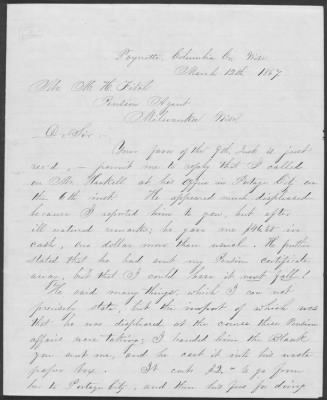 Poynette, Columbia Co. Wisc.
March 12th 1867
M. H. Fitch
Pension Agent
Milwaukee Wisc
D. Sir -
Your favor of the 9th inst. is just
rec'd. - permit me to reply that I called
on Mr. Haskell at his office in Portage City on
the 6th inst. He appeared much displeased
because I reported him to you, but after
ill natured remarks; he gave me in
cash, one dollar more than usual. He further
stated that he had sent my Pension certificate
away, but that I could have it next fall!
He said many things, which I can not
precisely state, but the import of which was
that he was displeased at the course these Pension
affairs were taking; I handed him the Blank
you sent me, and he cast it into his waste
paper box. It costs $2.- to go from
here to Portage City, and then his fees for doing